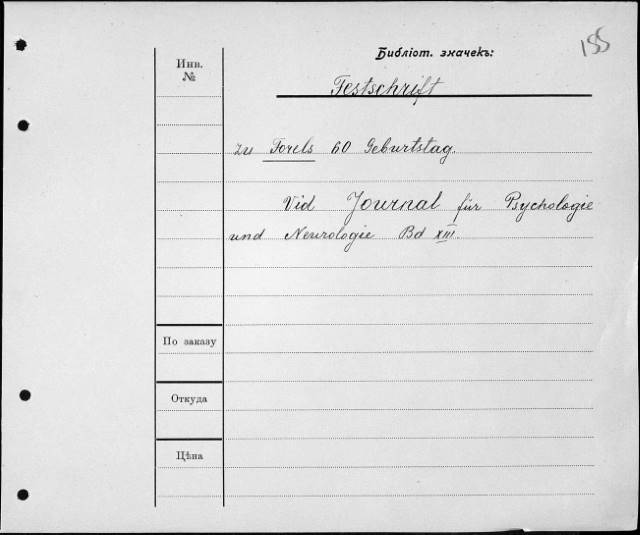 155
Библіот. значекъ:
Инв.
№
Festschrift
zu Forels 60 Geburtstag.
Vid Journal für Psychologie
und Neurologie Bd XIII.
По заказу
Откуда
Цѣна